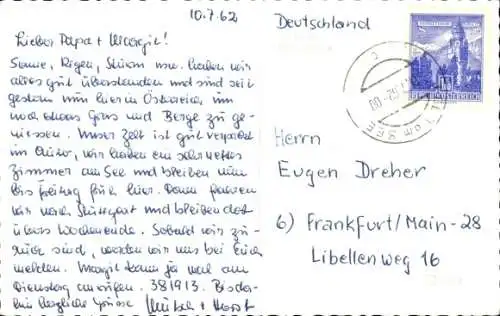 10.7.62
Deutschland
Lieber Papa + Margit!
Sonne, Regen, Sturm usw. haben wir
alles gut überstanden und sind seit
gestern nun hier in Österreich, um
noch etwas Gras und Berge zu ge-
niessen. Unser Zelt ist gut verpackt
im Auto, wir haben ein sehr nettes
Zimmer am See und bleiben nun
bis Freitag früh hier. Dann fahren
wir nach Stuttgart und bleiben dort
übers Wochenende. Sobald wir zu-
rück sind, werden wir uns bei Euch
melden. Margit kann ja mal am
Dienstag anrufen. 381913. Bis da-
hin herzliche Grüsse + Horst
Herrn
Eugen Dreher
6) Frankfurt/Main-28
Libellenweg 16
REPUBLIK ÖSTERREICH
AM SEE